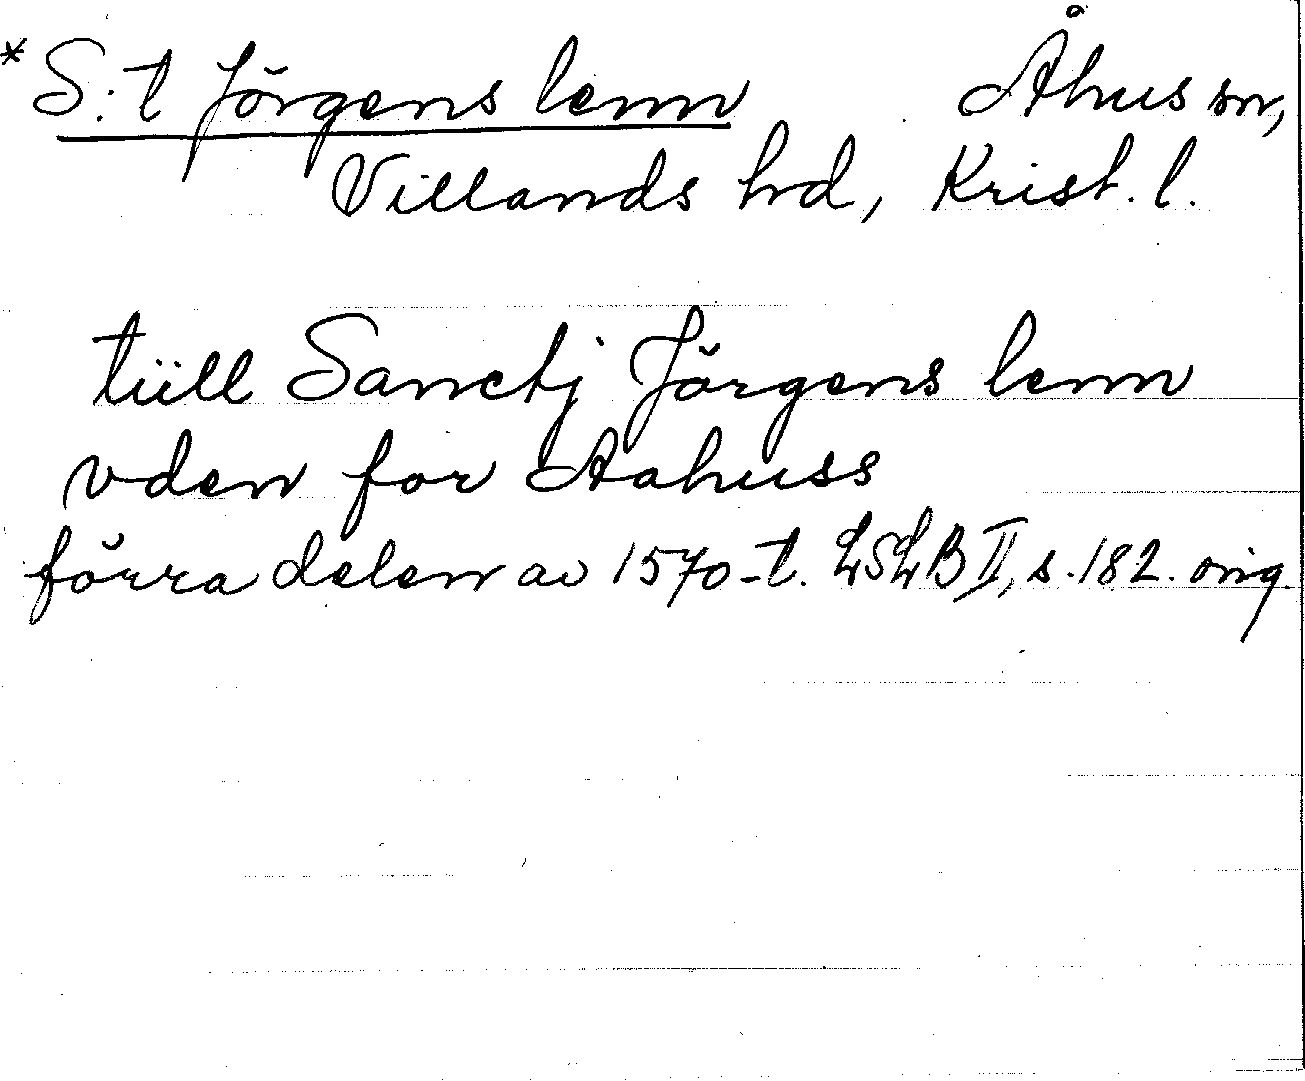 * S:t Jörgens lenn Åhus sn,
Villands hd, Krist. l.
tiill Sanctj Jörgens lenn
vden for Aahuss
förra delen av 1570-t. LSLB II, s. 182. orig.